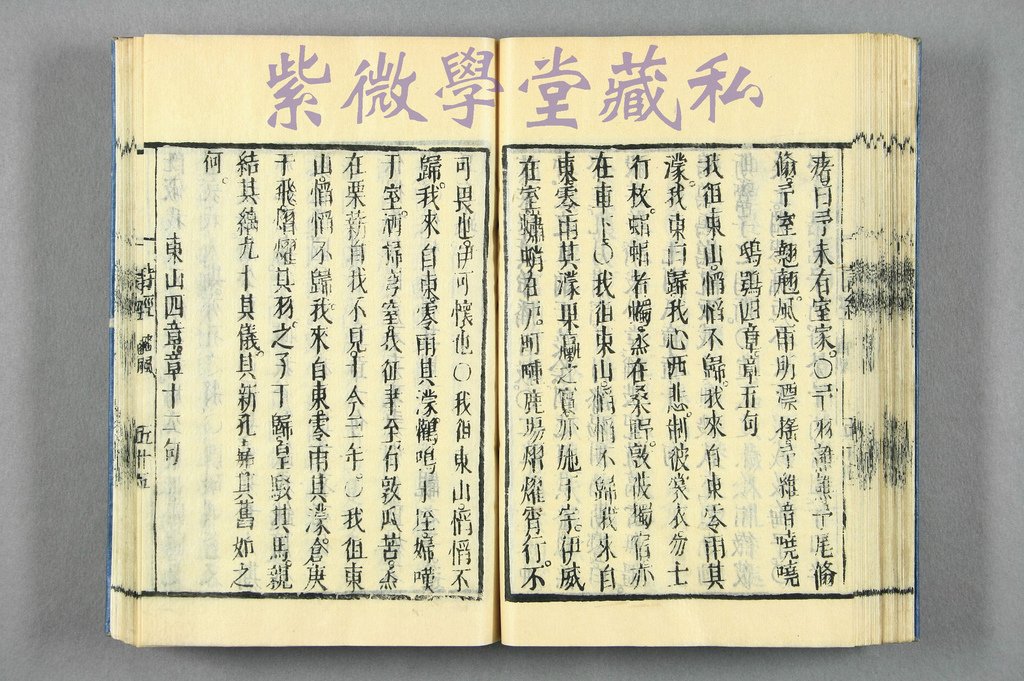 紫微學堂藏私
瘏。曰予未有室家。〇予羽譙譙予尾翛
翛。予室翹翹。風雨所漂搖予維音嘵嘵
鴟鴞四章章五句
我徂東山。慆慆不歸。我來自東零雨其
濛。我東曰歸我心西悲。制彼裳衣勿士
行枚。蜎蜎者蠋。烝在桑野。敦彼獨宿亦
在車下〇我徂東山。慆慆不歸。我來自
東零雨其濛果臝之實亦施于宇。伊威
在室蠨蛸在戶。町畽鹿場熠燿宵行。不
可畏也。伊可懷也〇我徂東山慆慆不
歸。我來自東零雨其濛鸛鳴于垤婦嘆
于室。洒掃穹窒我征聿至有敦瓜苦。烝
在栗薪自我不見。于今三年。〇我徂東
山。慆慆不歸我來自東零雨其濛。倉庚
于飛熠燿其羽。之子于歸皇駁其馬。親
結其縭九十其儀。其新孔嘉其舊如之
何。
東山四章。章十二句
詩經 豳風